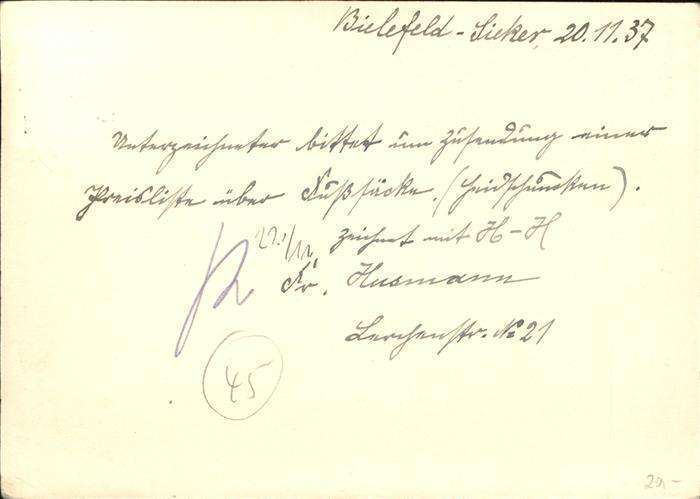 Bielefeld-Sieker, 20.11.37
Unterzeichneter bittet um Zusendung einer
Preisliste über Fußsäcke. (Heidschnucken).
zeichnet mit H-H
Fr. Husmann
Lerchenstr. No 21
45
20.-